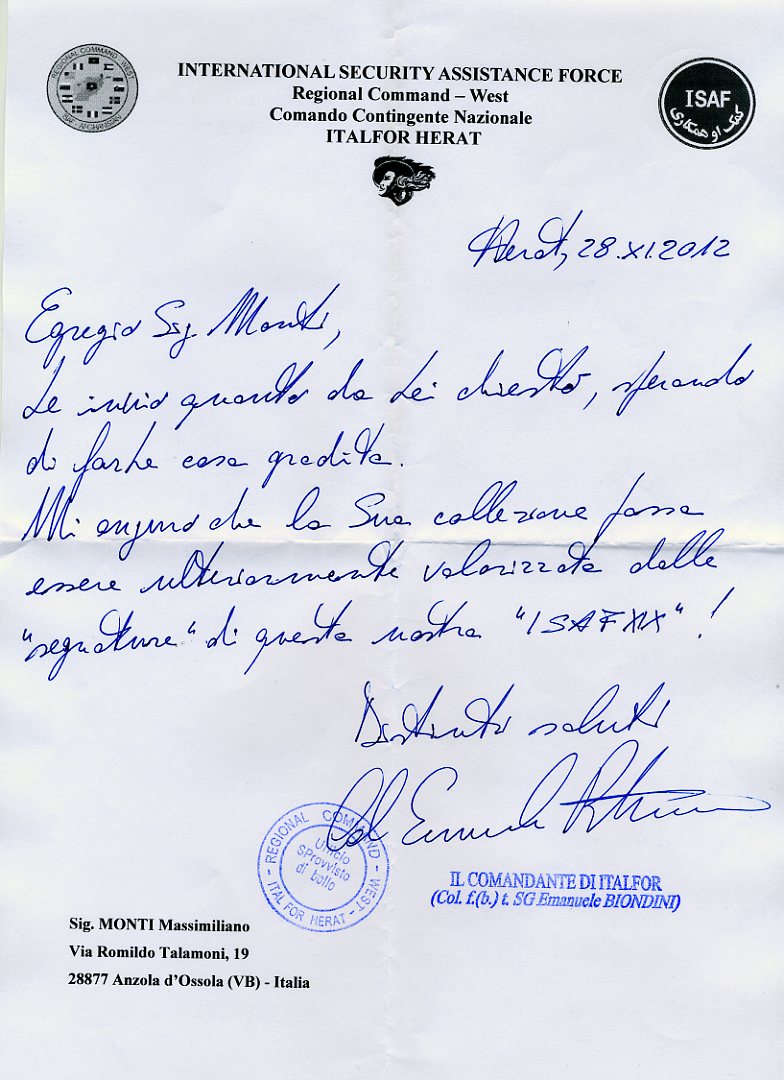 REGIONAL COMMAND WEST
ISAF - AFGHANISTAN
INTERNATIONAL SECURITY ASSISTANCE FORCE
Regional Command – West
Comando Contingente Nazionale
ITALFOR HERAT
ISAF
کمک او همکاری
Herat, 28.XI.2012
Egregio Sig. Monti,
Le invio quanto da Lei chiesto, sperando
di farLe cosa gradita.
Mi auguro che la Sua collezione possa
essere ulteriormente valorizzata dalle
"segnature" di questa nostra "ISAF XIX" !
Distinti saluti
Col Emanuele
REGIONAL COMMAND - WEST -
ITALFOR HERAT -
Ufficio
SProvvisto
di bollo
IL COMANDANTE DI ITALFOR
(Col. f.(b.) t. SG Emanuele BIONDINI)
Sig. MONTI Massimiliano
Via Romildo Talamoni, 19
28877 Anzola d'Ossola (VB) - Italia